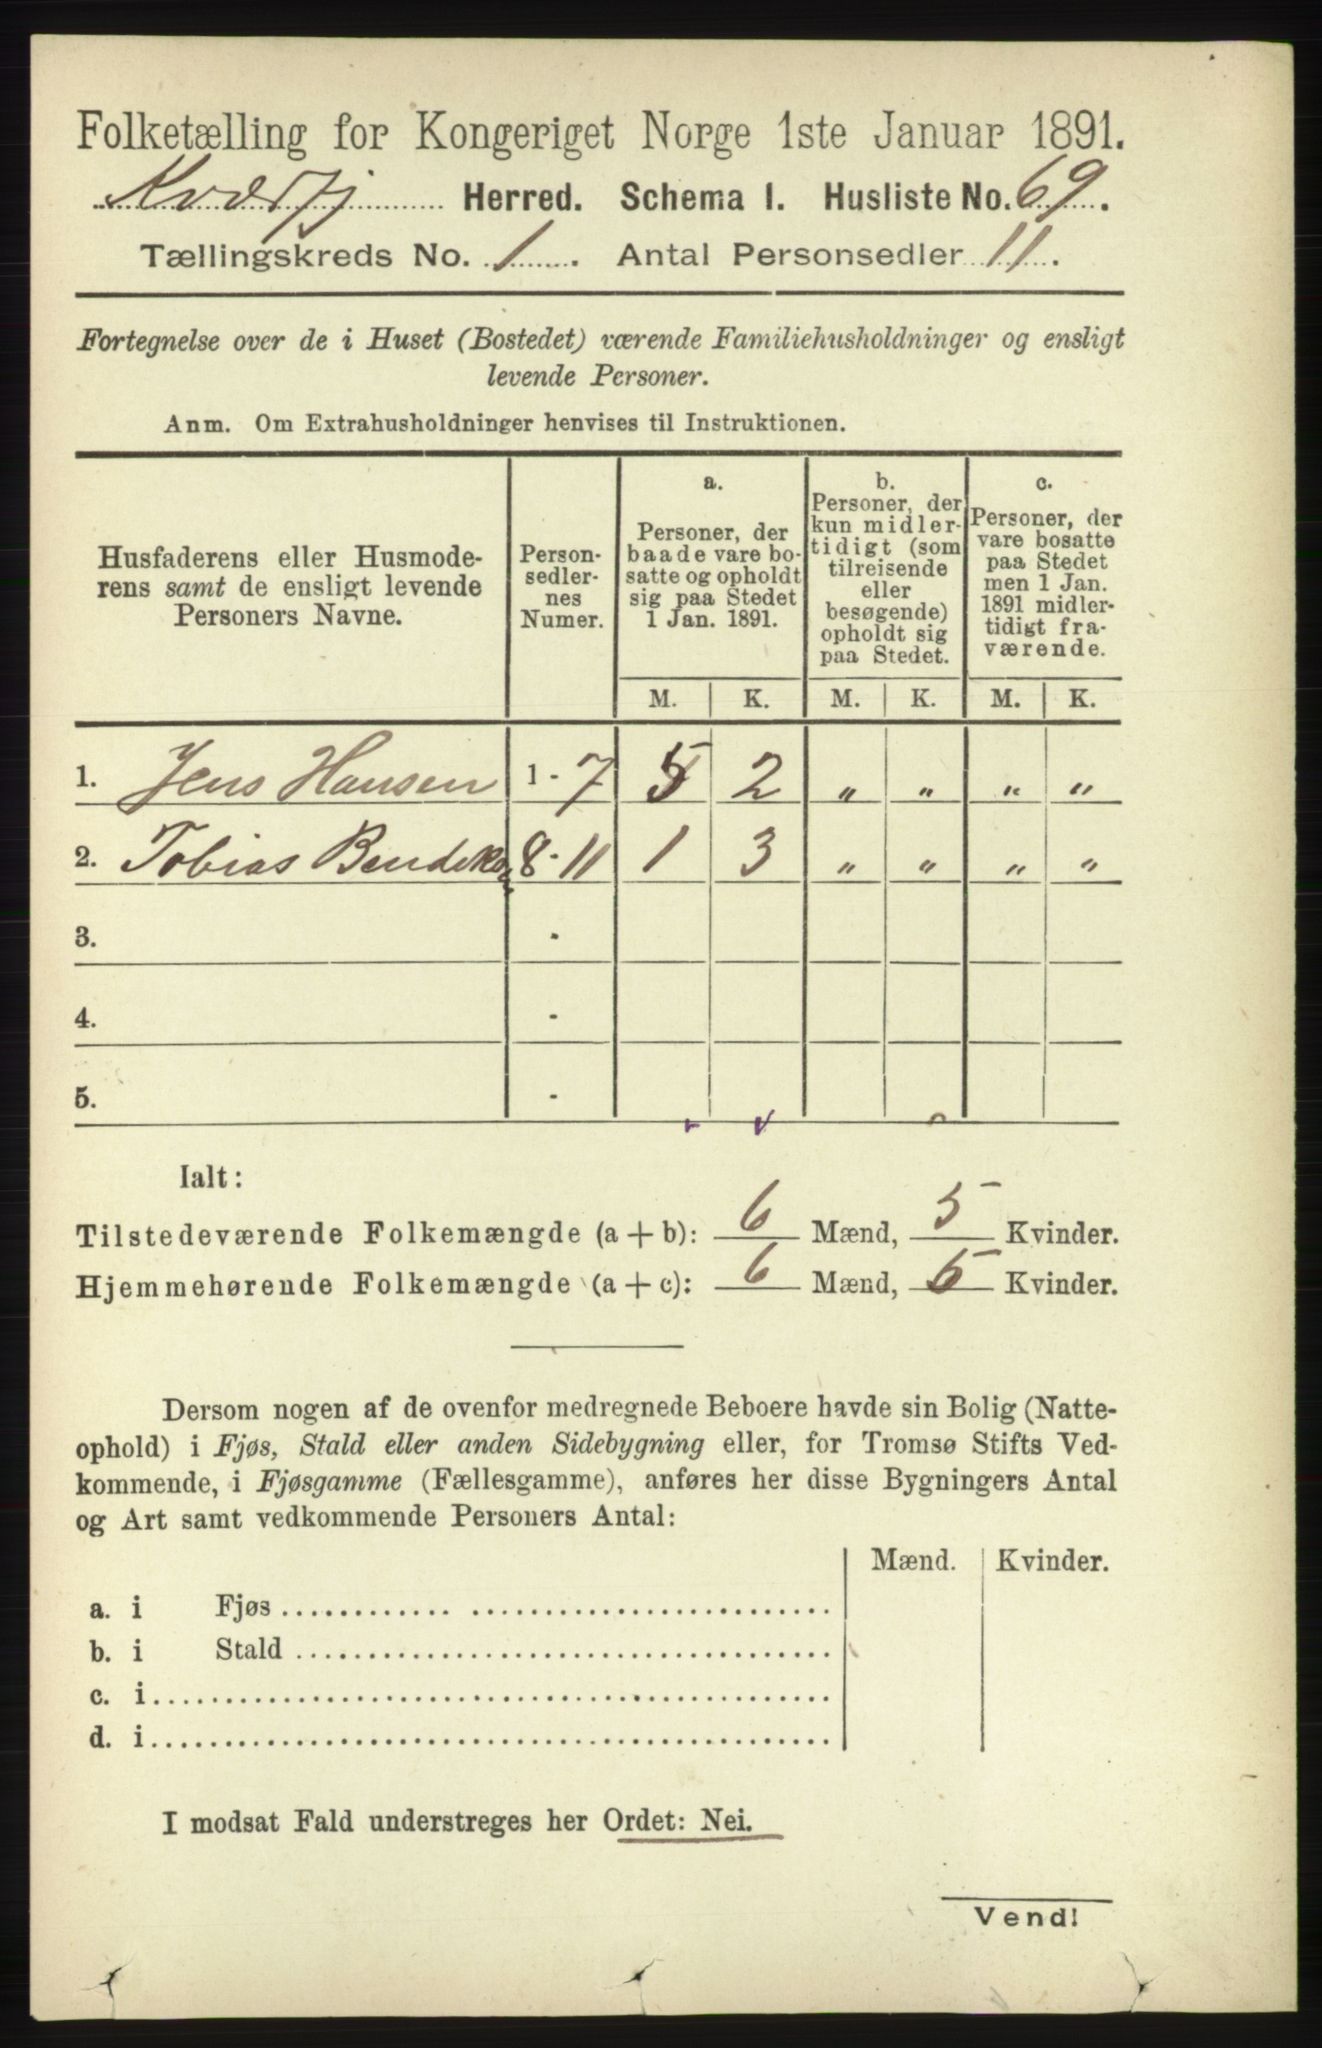 Folketælling for Kongeriget Norge 1ste Januar 1891.
Kværfj Herred. Schema I. Husliste No. 69.
Tællingskreds No. 1. Antal Personsedler 11.
Fortegnelse over de i Huset (Bostedet) værende Familiehusholdninger og ensligt
levende Personer.
Anm. Om Extrahusholdninger henvises til Instruktionen.
Husfaderens eller Husmode-
rens samt de ensligt levende
Personers Navne.
Person-
sedler-
nes
Numer.
a.
Personer, der
baade vare bo-
satte og opholdt
sig paa Stedet
1 Jan. 1891.
b.
Personer, der
kun midler-
tidigt (som
tilreisende
eller
besøgende)
opholdt sig
paa Stedet.
c.
Personer, der
vare bosatte
paa Stedet
men 1 Jan.
1891 midler-
tidigt fra-
værende.
M. K. M. K. M. K.
1. Jens Hansen 1 - 7 5 2 „ „ „ „
2. Tobias 8 - 11 1 3 „ „ „ „
3. -
4. -
5. -
Ialt:
Tilstedeværende Folkemængde (a + b): 6 Mænd, 5 Kvinder.
Hjemmehørende Folkemængde (a + c): 6 Mænd, 5 Kvinder.
Dersom nogen af de ovenfor medregnede Beboere havde sin Bolig (Natte-
ophold) i Fjøs, Stald eller anden Sidebygning eller, for Tromsø Stifts Ved-
kommende, i Fjøsgamme (Fællesgamme), anføres her disse Bygningers Antal
og Art samt vedkommende Personers Antal:
Mænd. Kvinder.
a. i Fjøs
b. i Stald
c. i
d. i
I modsat Fald understreges her Ordet: Nei.
Vend!